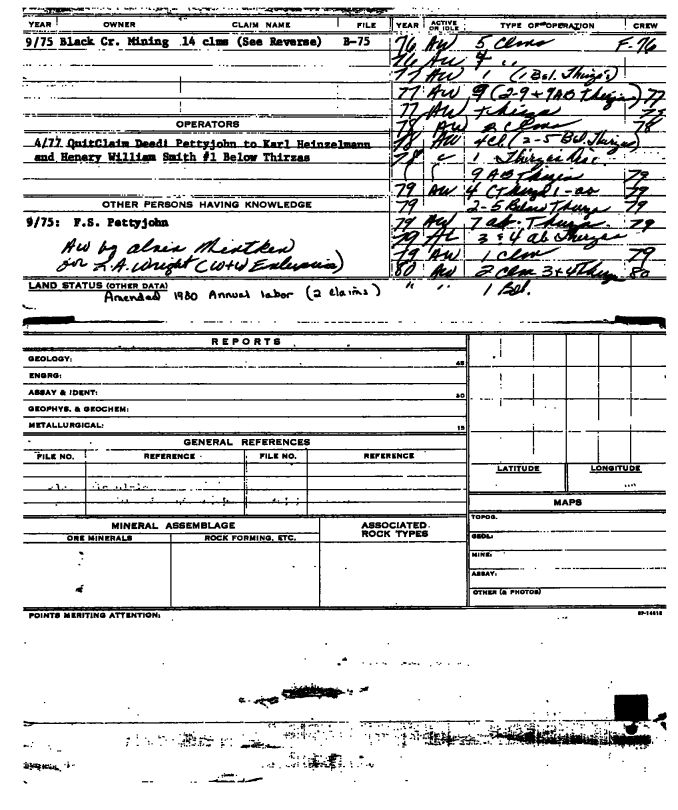 YEAR OWNER CLAIM NAME FILE YEAR ACTIVE OR IDLE TYPE OF OPERATION CREW
9/75 Black Cr. Mining 14 clms (See Reverse) B-75 76 AW 5 Clms F-76
76 AW 4 "
77 AW 1 (1 Bel. Thirza's)
77 AW 9 (2-9 + 9 AB Thirza) 77
77 AW Thirza
OPERATORS 78 AW 2 Clms 78
4/77 QuitClaim Deed: Pettyjohn to Karl Heinzelmann 78 AW 4 cl (2-5 Bel. Thirzas)
and Henery William Smith #1 Below Thirzas 78 1 Thirzas Disc.
9 AB Thirza 79
79 AW 4 (Thirza 1- 79
OTHER PERSONS HAVING KNOWLEDGE 79 2-5 Below Thirza 79
9/75: F.S. Pettyjohn 79 AW 7 ab. Thirza 79
AW by 79 AL 3 & 4 ab Thirzas
for L.A. Wright (W+W 79 AW 1 clm 79
80 AW 2 clm 3+4 Thirza 80
LAND STATUS (OTHER DATA) " " 1 Bel.
Amended 1980 Annual labor (2 claims)
REPORTS
GEOLOGY: 45
ENGRG:
ASSAY & IDENT: 30
GEOPHYS. & GEOCHEM:
METALLURGICAL: 15
GENERAL REFERENCES
FILE NO. REFERENCE FILE NO. REFERENCE
LATITUDE LONGITUDE
MAPS
TOPOG.
MINERAL ASSEMBLAGE ASSOCIATED ROCK TYPES
ORE MINERALS ROCK FORMING, ETC.
GEOL:
MINE:
ASSAY:
OTHER (& PHOTOS)
POINTS MERITING ATTENTION: